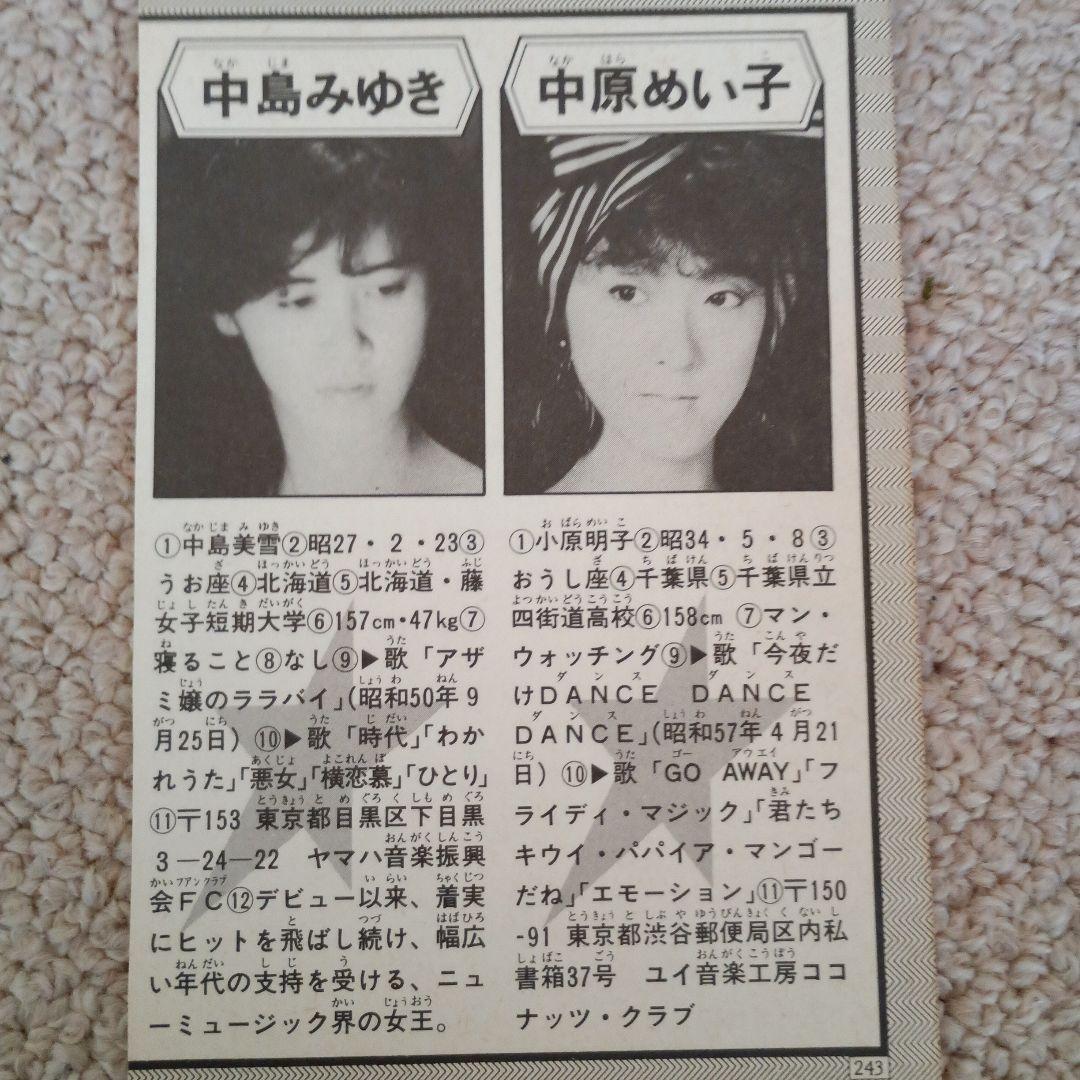 中島みゆき
①中島美雪②昭27・2・23③
うお座④北海道⑤北海道・藤
女子短期大学⑥157cm・47kg⑦
寝ること⑧なし⑨▶歌「アザ
ミ嬢のララバイ」(昭和50年9
月25日)⑩▶歌「時代」「わか
れうた」「悪女」「横恋慕」「ひとり」
⑪〒153 東京都目黒区下目黒
3―24―22 ヤマハ音楽振興
会FC⑫デビュー以来、着実
にヒットを飛ばし続け、幅広
い年代の支持を受ける、ニュ
ーミュージック界の女王。
中原めい子
①小原明子②昭34・5・8③
おうし座④千葉県⑤千葉県立
四街道高校⑥158cm ⑦マン・
ウォッチング⑨▶歌「今夜だ
けDANCE DANCE
DANCE」(昭和57年4月21
日)⑩▶歌「GO AWAY」「フ
ライディ・マジック」「君たち
キウイ・パパイア・マンゴー
だね」「エモーション」⑪〒150
-91 東京都渋谷郵便局区内私
書箱37号 ユイ音楽工房ココ
ナッツ・クラブ
243